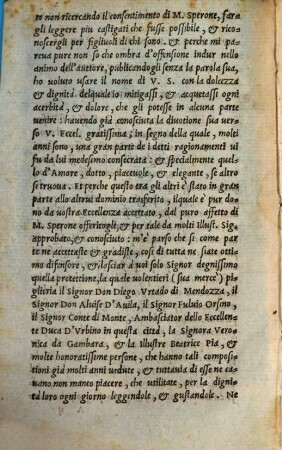 te non ricercando il consentimento di M. Sperone, far a
gli leggere piu castigati che fusse possibile, & rico
noscergli per figliuoli di chi sono. & perche mi pa
reua pure non so che ombra d'offensione indur nello
animo dell'auttore, publicandogli senza la parola sua,
ho voluto usare il nome di V. S. con la dolcezza
et dignità delquale io mitigassi, & acquetassi ogni
acerbità, & dolore, che gli potesse in alcuna parte
venire: hauendo già conosciuta la diuotione sua ver
so V. Eccel. gratissima; in segno della quale, molti
anni sono, una gran parte de i detti ragionamenti ui
fu da lui medesimo consecrata: & spetialmente quel
lo d'Amore, dotto, piaceuole, & elegante, se altro
se ruoua. Et perche questo tra gli altri è stato in gran
parte allo altrui dominio trasferito, ilquale è pur do
no da uostra Eccellenza accettato, dal puro affetto di
M. Sperone offertogli, & per tale da molti illust. Sig.
approbato, & conosciuto: m'è parso che si come par
te ne accettaste & gradiste, cosi di tutta ne siate otti
mo difensore, & lasciar à voi solo Signor degnissimo
quella protettione, la quale volentieri (sua mercè) pi
glieria il Signor Don Diego Vrtado di Mendozza, il
Signor Don Aluise D'Auila, il Signor Fuluio Orsino,
il Signor Conte di Monte, Ambasciator dello Eccellen
te Duca D'Vrbino in questa città, la Signora Vero
nica da Gambara, & la Illustre Beatrice Pia, &
molte honoratissime persone, che hanno tali composi
tioni già molti anni uedute, & tuttauia di esse ne ca
uano non manco piacere, che utilitate, per la digni
tà loro ogni giorno leggendole, & gustandole. Ne